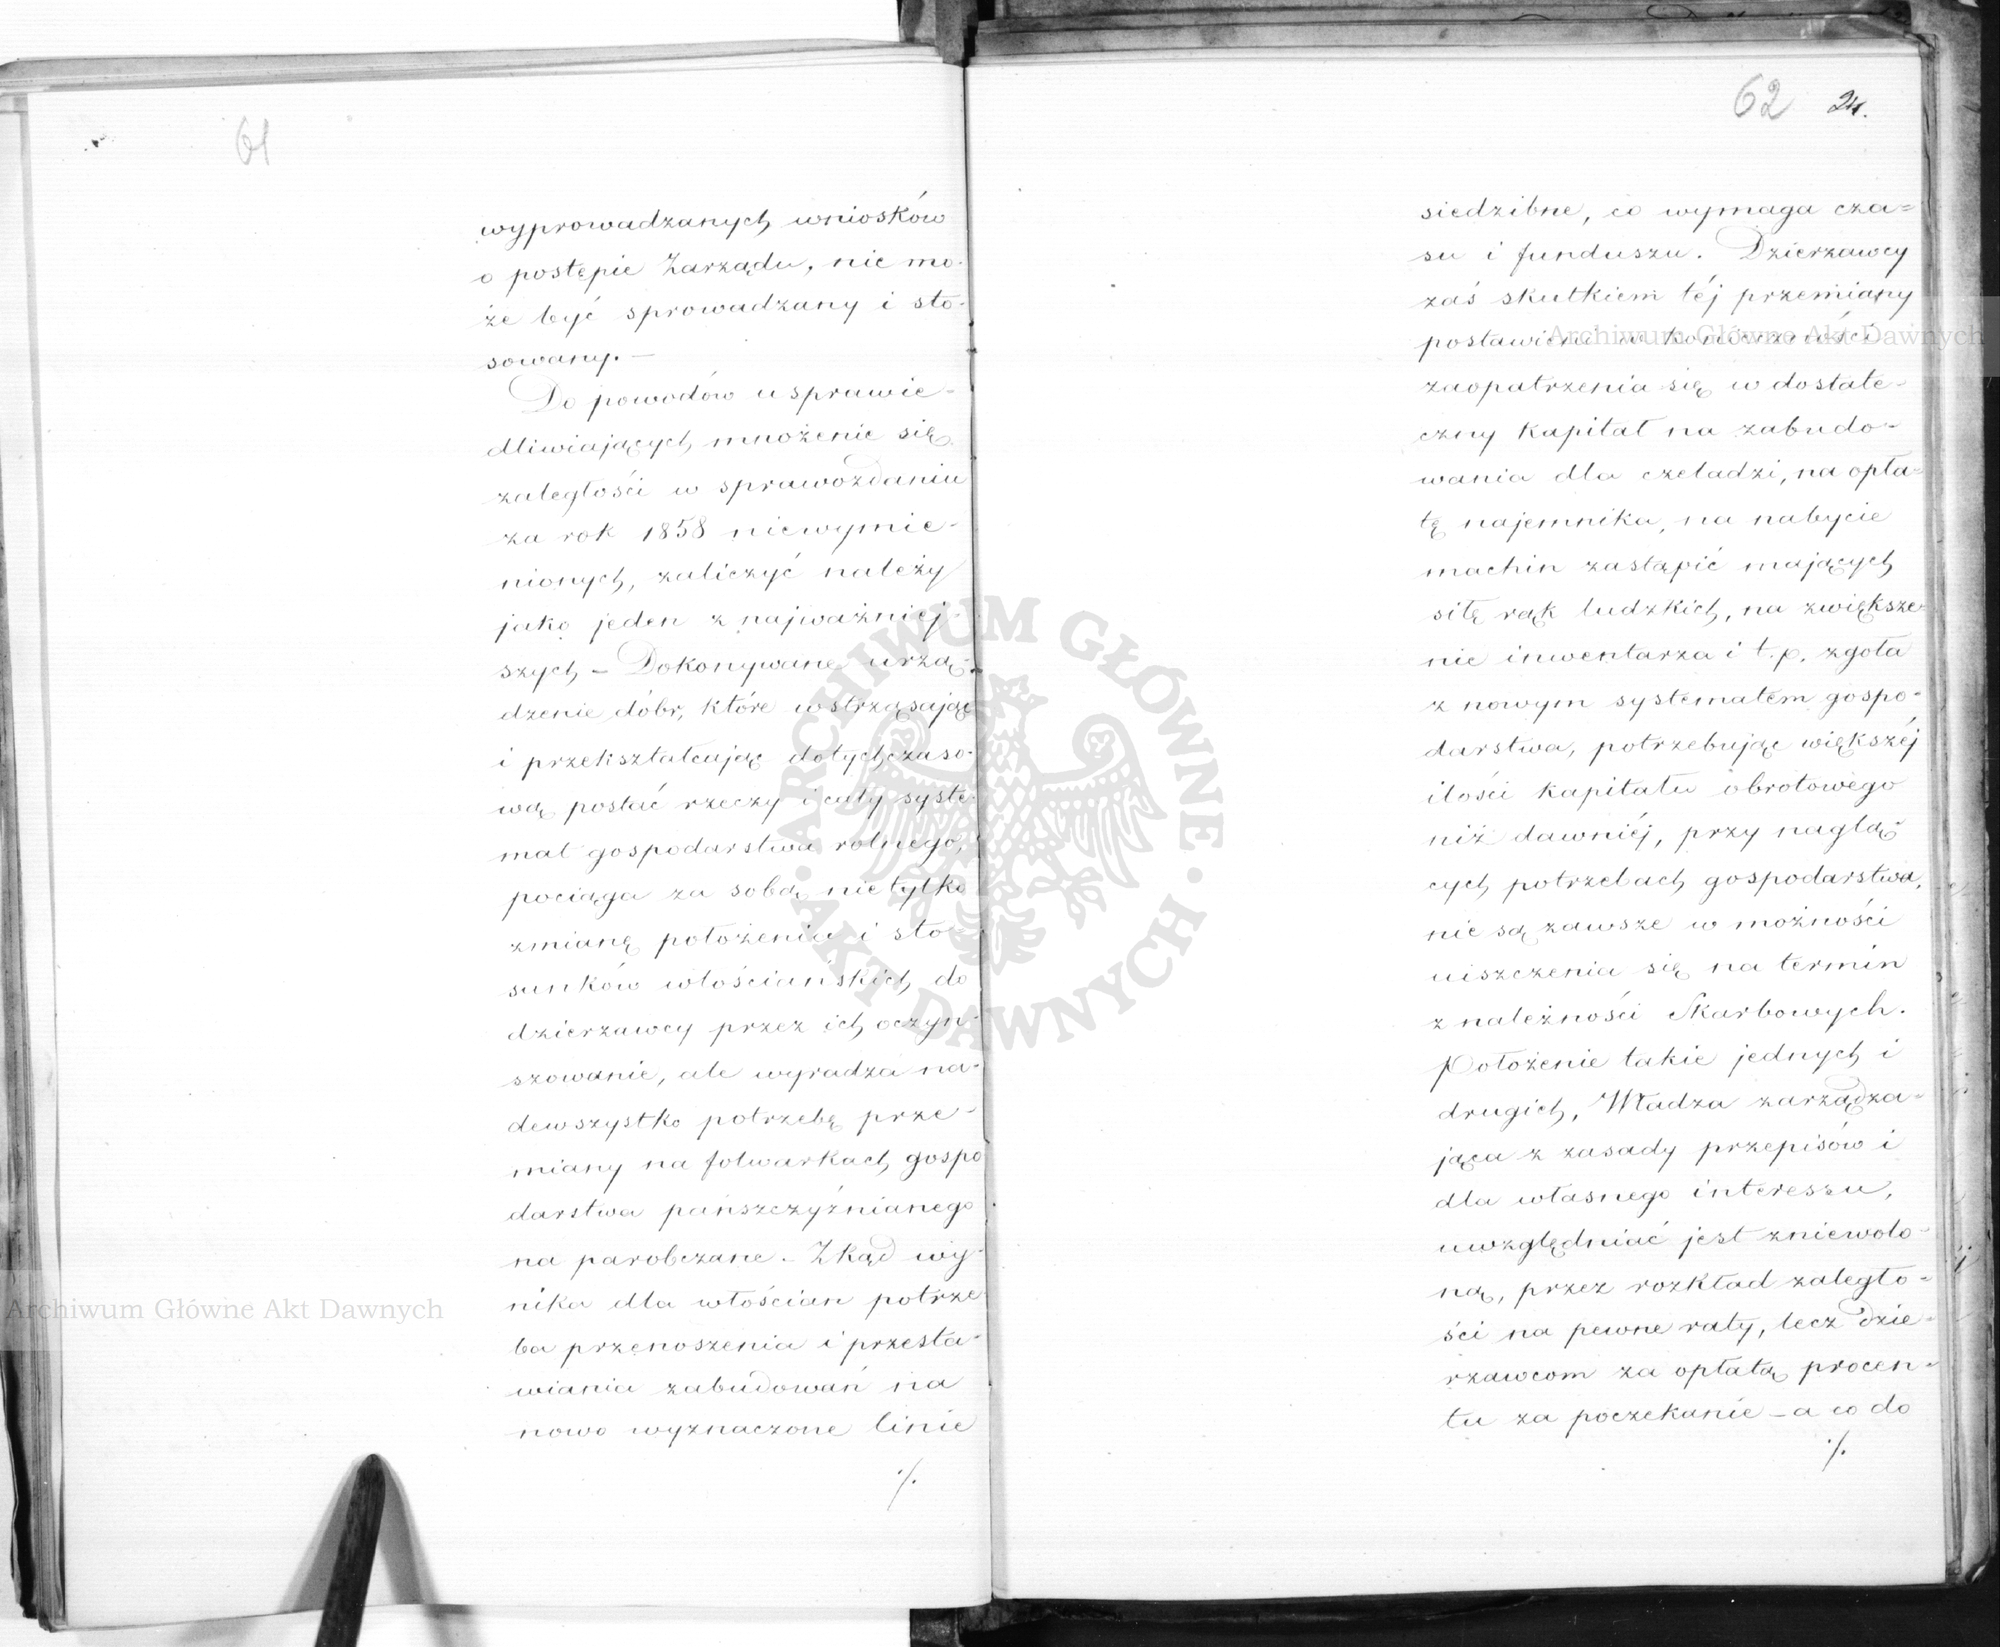 61
wyprowadzanych wniosków
o postępie Zarządu, nie mo-
że być sprowadzany i sto-
sowany. —
Do powodów usprawie-
dliwiających mnożenie się
zaległości w sprawozdaniu
za rok 1858 niewymie-
nionych, zaliczyć należy
jako jeden z najważniej-
szych – Dokonywane urzą-
dzenie dóbr, które wstrząsając
i przekształcając dotychczaso-
wą postać rzeczy i cały syste-
mat gospodarstwa rolnego,
pociąga za sobą nietylko
zmianę położenia i sto-
sunków włościańskich do
dzierzawcy przez ich oczyn-
szowanie, ale wyradza na-
dewszystko potrzebę prze-
miany na folwarkach gospo
darstwa pańszczyźnianego
na parobczane. Zkąd wy-
nika dla włościan potrze
ba przenoszenia i przesta-
wiania zabudowań na
nowo wyznaczone linie
./.
62 24.
siedzibne, co wymaga cza=
su i funduszu. Dzierzawcy
zaś skutkiem téj przemiany
postawieni w konieczności
zaopatrzenia się w dostate-
czny kapitał na zabudo-
wania dla czeladzi, na opła-
tę najemnika, na nabycie
machin zastąpić mających
siłę rąk ludzkich, na zwiększe-
nie inwentarza i t.p. zgoła
z nowym systematém gospo-
darstwa, potrzebując większéj
ilości kapitału obrotowego
niż dawniéj, przy naglą-
cych potrzebach gospodarstwa,
nie są zawsze w możności
uiszczenia się na termin
z należności Skarbowych.
Położenie takie jednych i
drugich, Władza zarządza-
jąca z zasady przepisów i
dla własnego interessu,
uwzględniać jest zniewolo-
ną, przez rozkład zaległo-
ści na pewne raty, lecz dzie-
rzawcom za opłatą procen-
tu za poczekanie – a co do
./.
Archiwum Główne Akt Dawnych
Archiwum Główne Akt Dawnych
ARCHIWUM GŁÓWNE · AKT DAWNYCH ·